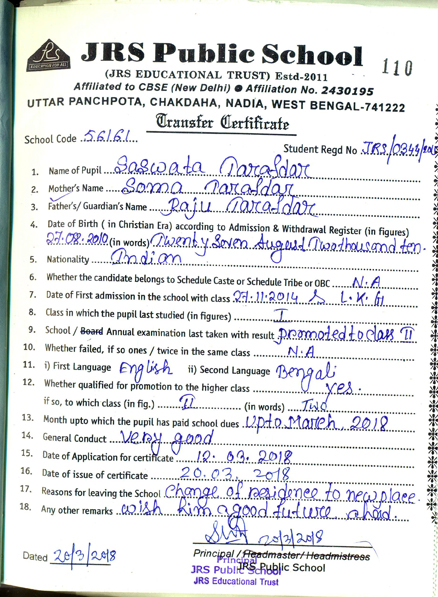 JRS Public School
110
(JRS EDUCATIONAL TRUST) Estd-2011
Affiliated to CBSE (New Delhi) ● Affiliation No. 2430195
UTTAR PANCHPOTA, CHAKDAHA, NADIA, WEST BENGAL-741222
Transfer Certificate
School Code 56161
Student Regd No JRS/0344/2015
1. Name of Pupil Saswata Tarafdar
2. Mother's Name Soma Tarafdar
3. Father's/ Guardian's Name Raju Tarafdar
4. Date of Birth ( in Christian Era) according to Admission & Withdrawal Register (in figures)
27.08.2010 (in words) Twenty Seven August Two thousand ten.
5. Nationality Indian
6. Whether the candidate belongs to Schedule Caste or Schedule Tribe or OBC N.A
7. Date of First admission in the school with class 27.11.2014 & L.K.G
8. Class in which the pupil last studied (in figures) I
9. School / Board Annual examination last taken with result promoted to class II
10. Whether failed, if so ones / twice in the same class N.A
11. i) First Language English ii) Second Language Bengali
12. Whether qualified for promotion to the higher class yes.
if so, to which class (in fig.) II (in words) Two
13. Month upto which the pupil has paid school dues Upto March, 2018
14. General Conduct very good
15. Date of Application for certificate 12.03.2018
16. Date of issue of certificate 20.03.2018
17. Reasons for leaving the School Change of residence to new place.
18. Any other remarks wish him a good future ahad.
20/3/2018
Dated 20/3/2018
Principal / Headmaster/ Headmistress
Principal
JRS Public School
JRS Public School
JRS Educational Trust